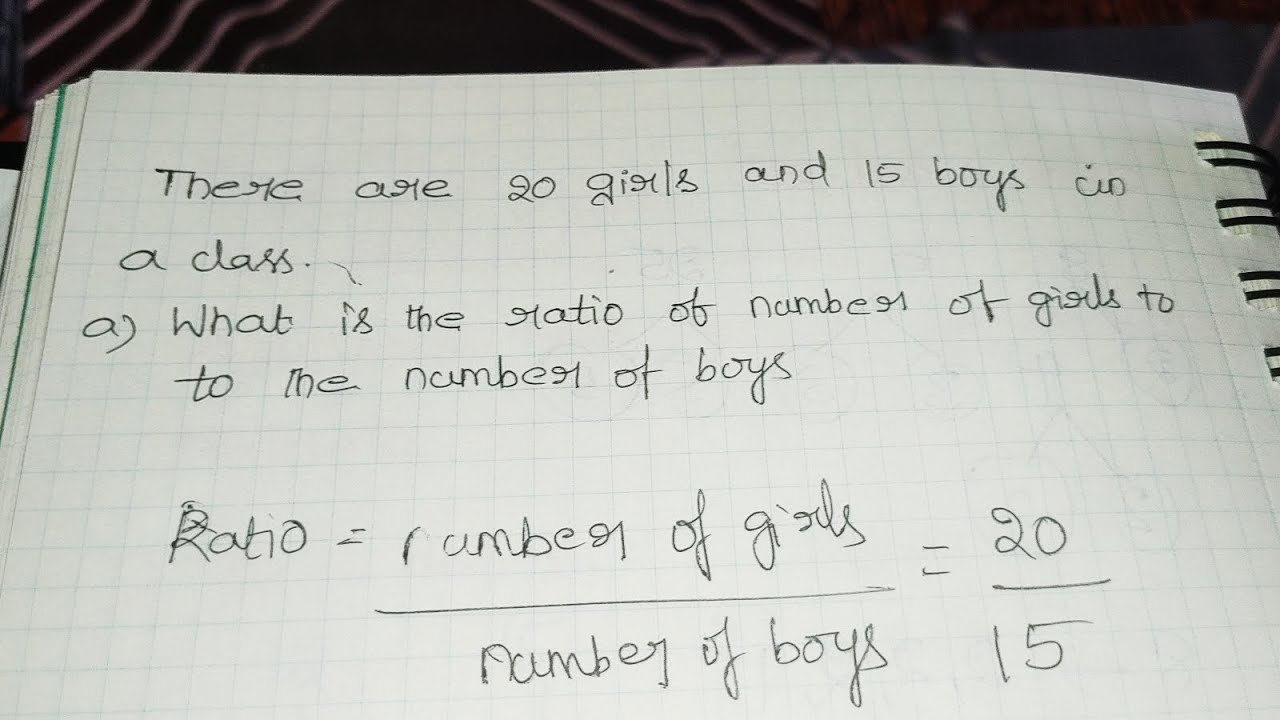 There are 20 girls and 15 boys in
a class.
a) What is the ratio of number of girls to
to the number of boys
Ratio = number of girls = 20
number of boys 15